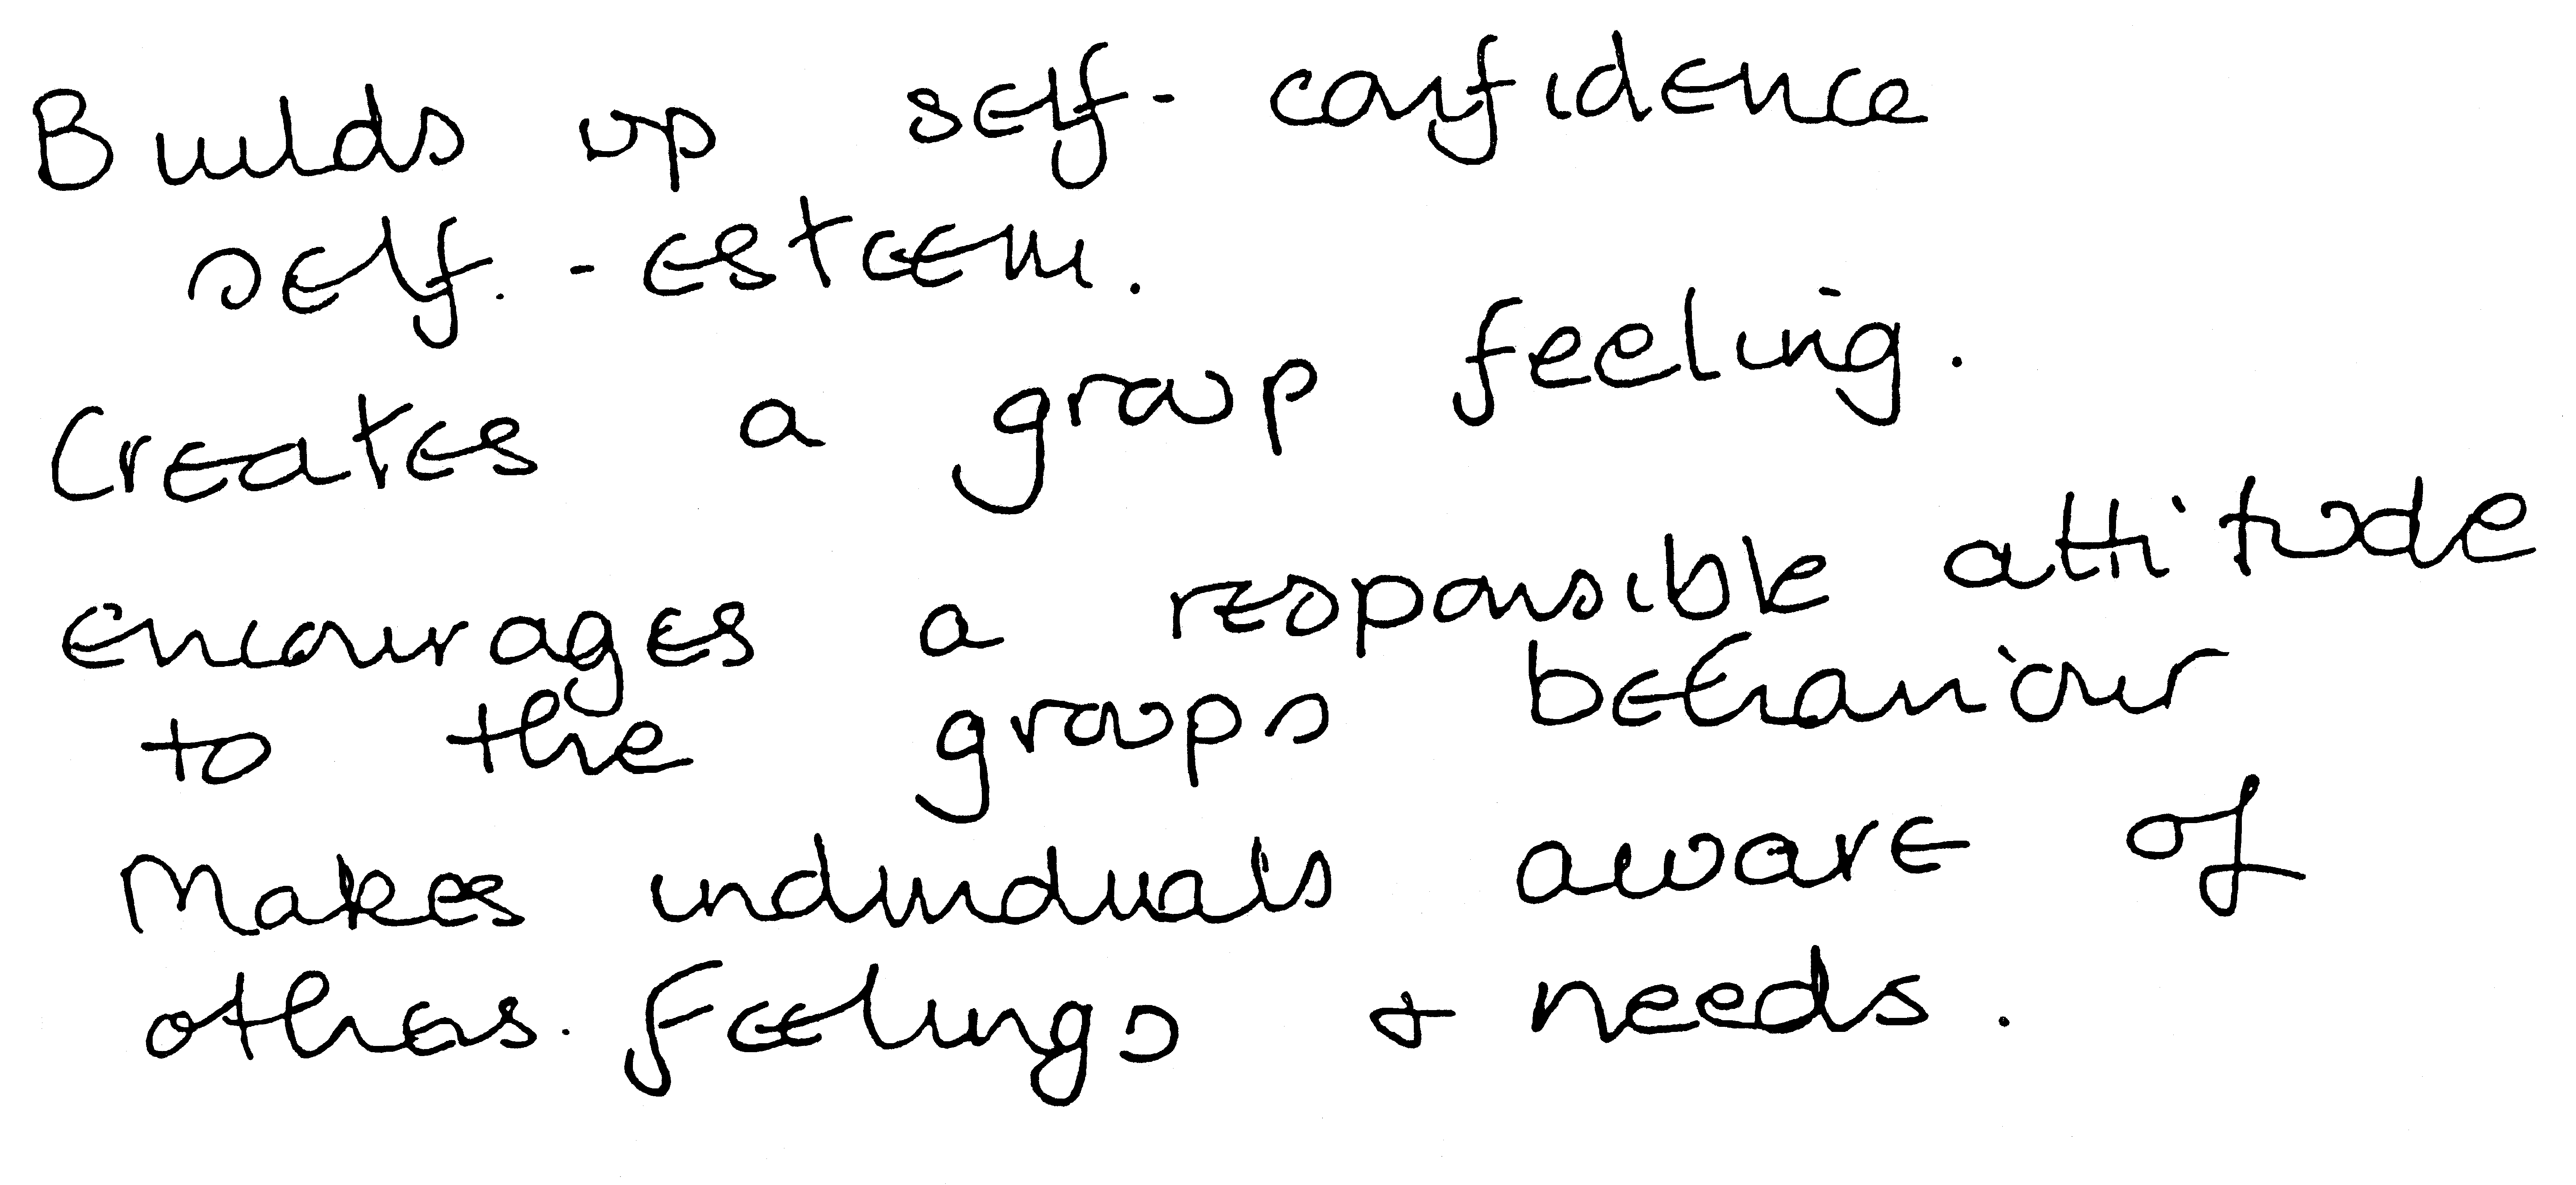 Builds up self-confidence
self.-esteem.
Creates a group feeling.
encourages a responsible attitude
to the groups behaviour
Makes individuals aware of
others. feelings + needs.